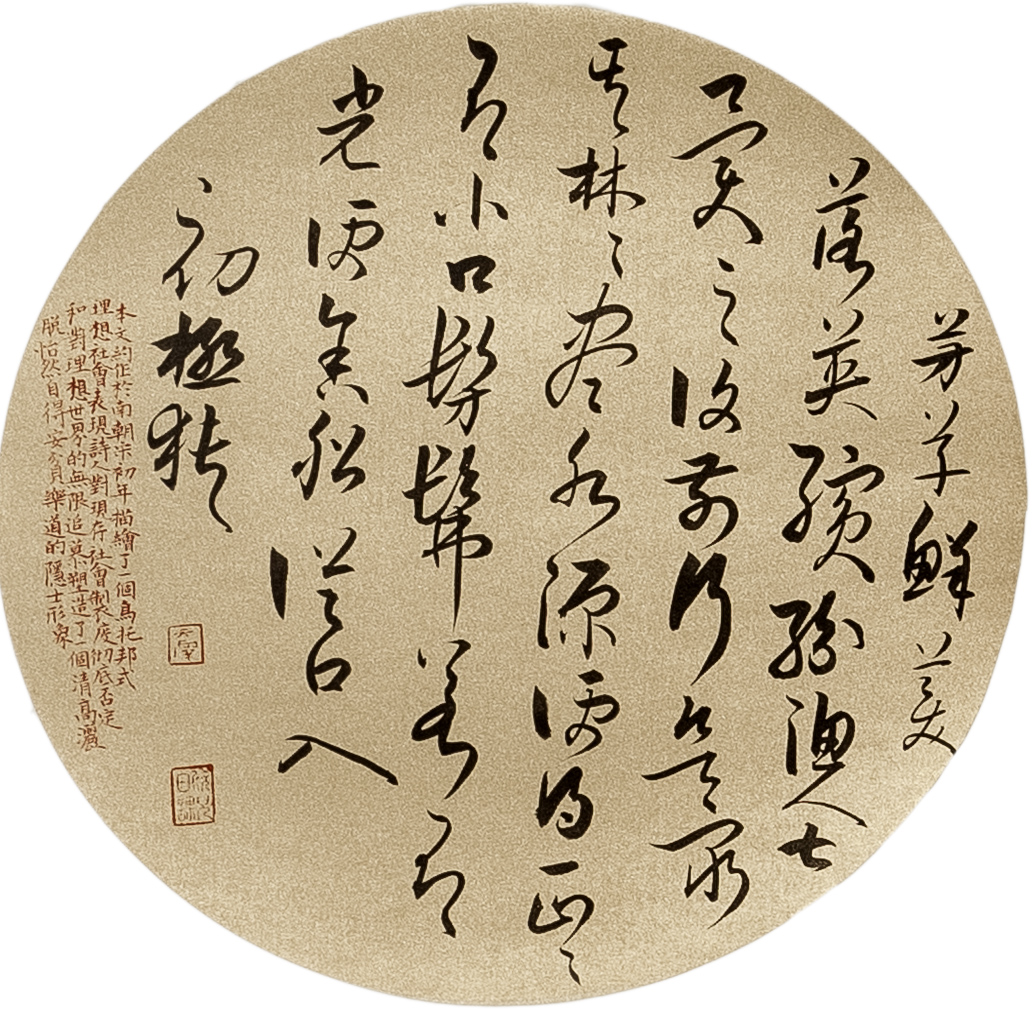 芳草鮮美
落英繽紛漁人甚
異之復前行欲窮
其林〻盡水源便得一山〻
有小口髣髴若有
光便舍船從口入
初極狹
本文約作於南朝宋初年描繪了一個烏托邦式
理想社會表現詩人對現存社會制度徹底否定
和對理想世界的無限追慕塑造了一個清高灑
脫怡然自得安貧樂道的隱士形象